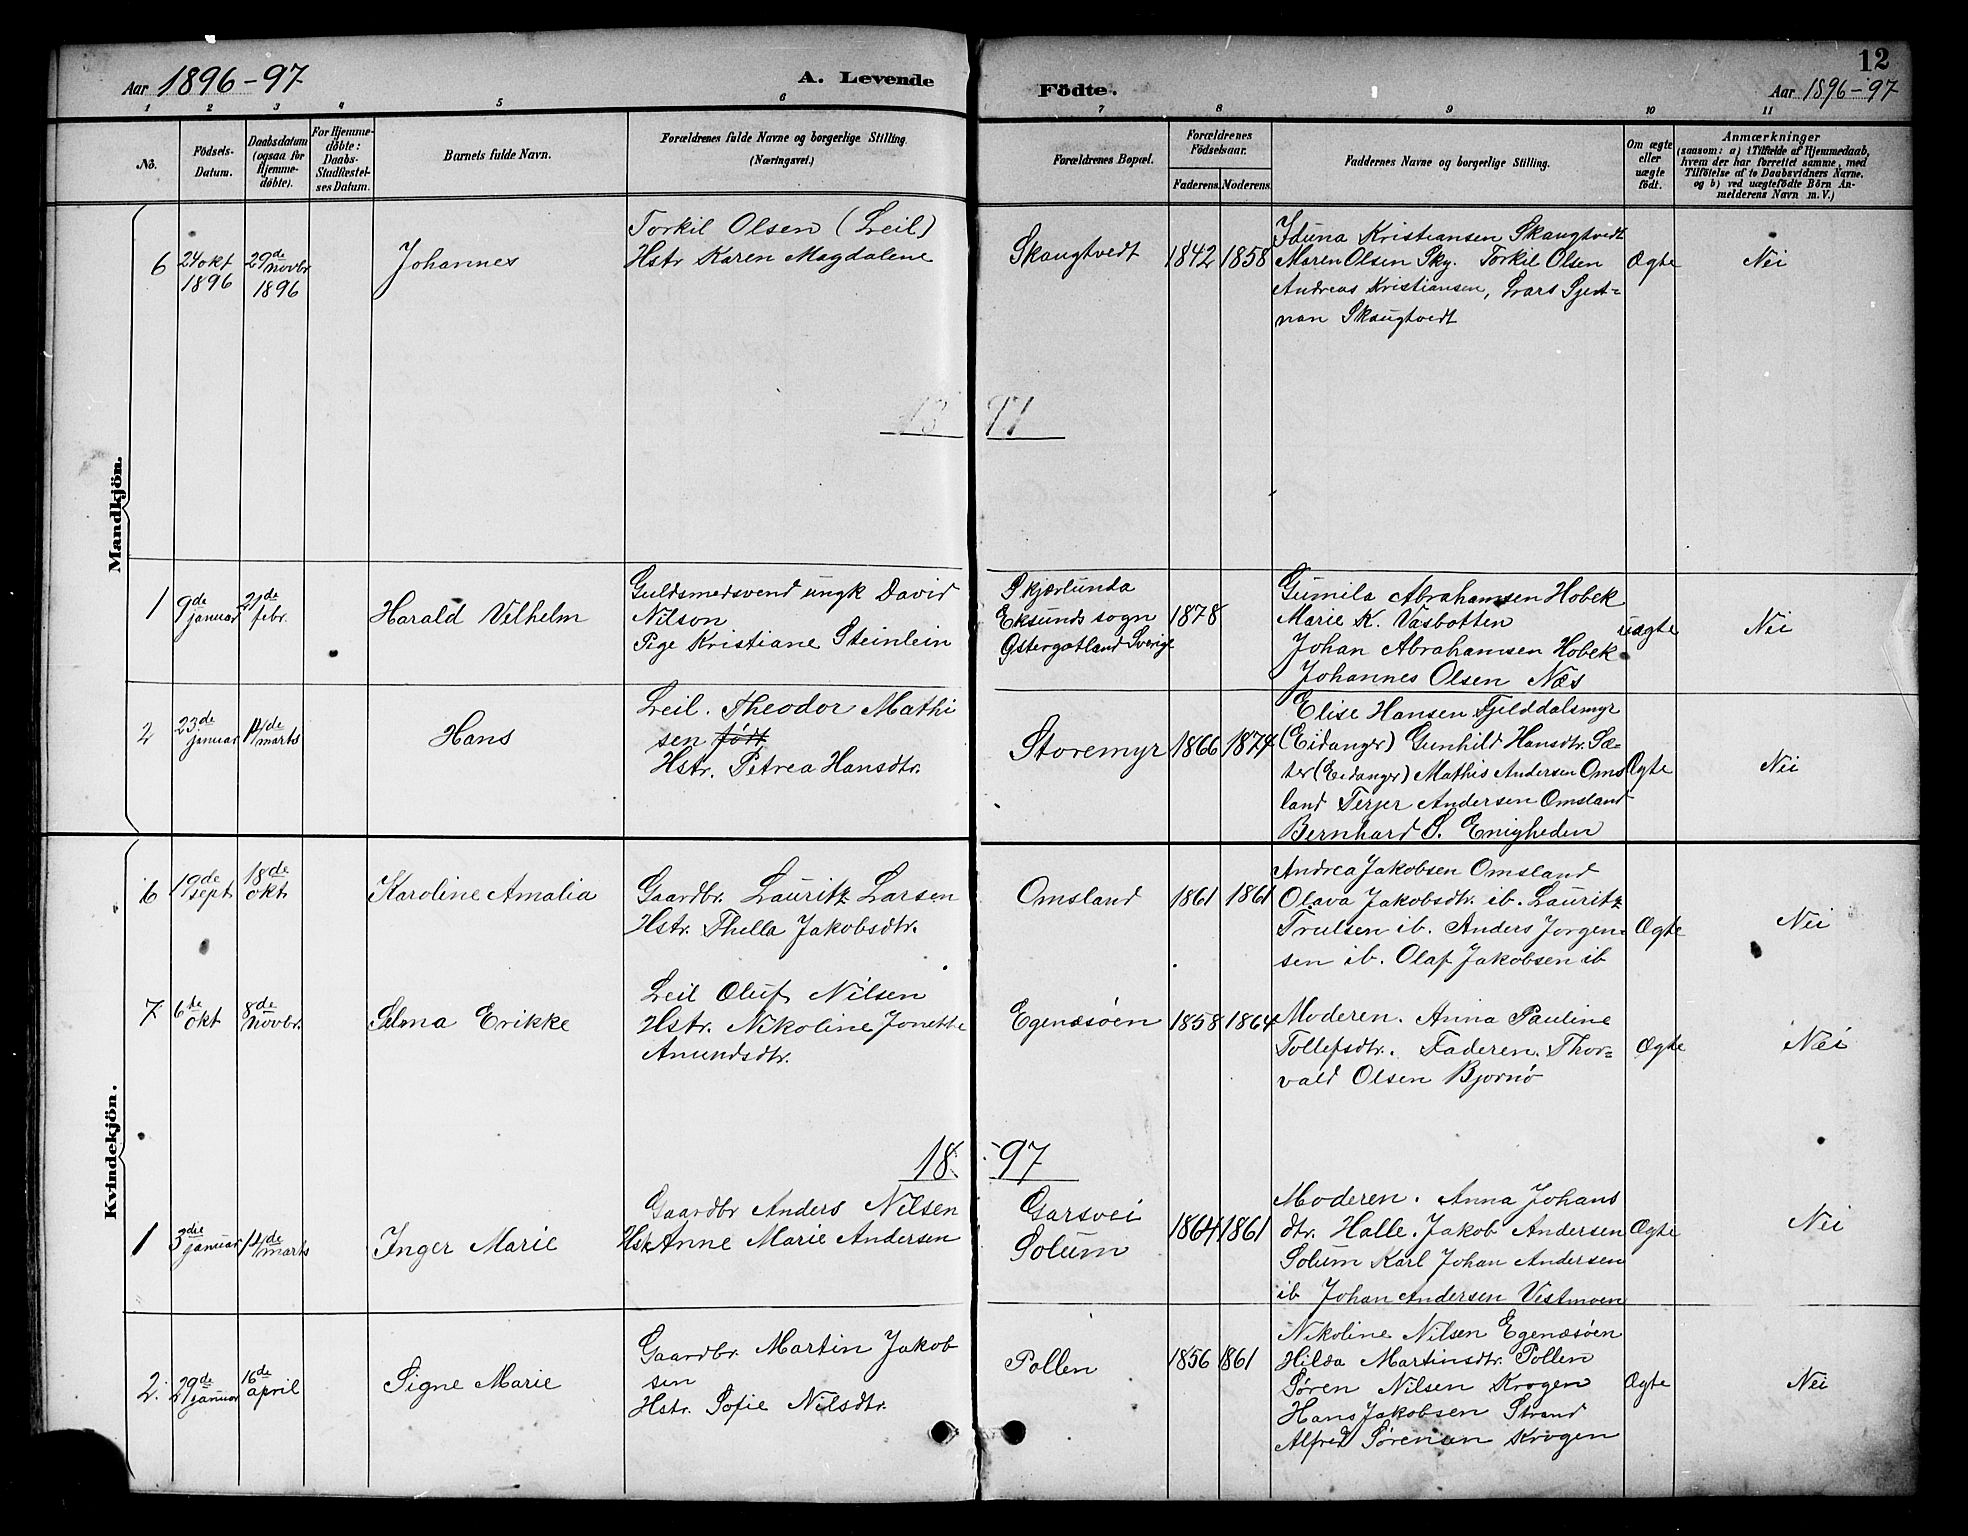 Aar 1896-97
A. Levende
Födte.
12
Aar 1896-97
1 2 3 4 5 6 7 8 9 10 11
No.
Födsels-
Datum.
Daabsdatum
(ogsaa for
Hjemme-
döbte).
For Hjemme-
döbte:
Daabs-
Stadfæstel-
ses Datum.
Barnets fulde Navn.
Forældrenes fulde Navne og borgerlige Stilling.
(Næringsvei.)
Forældrenes Bopæl.
Forældrenes
Födselsaar.
Faderens. Moderens.
Faddernes Navne og borgerlige Stilling.
Om ægte
eller
uægte
födt.
Anmærkninger
(saasom: a) i Tilfælde af Hjemmedaab,
hvem der har forrettet samme, med
Tilföielse af to Daabsvidners Navne,
og b) ved uægtefödte Börn An-
melderens Navn m. V.)
Mandkjön.
6
24 okt
1896
29de
novbr
1896
Johannes
Torkil Olsen (Leil)
Hstr Karen Magdalene
Skaugtvedt
1842
1858
Iduna Kristiansen Skaugtvedt
Maren Olsen Sky. Torkil Olsen
Andreas Kristiansen, Lars Gjert-
nan Skaugtvedt
Ægte
Nei
97
1
9de
januar
21de
febr.
Harald Vilhelm
Guldsmedsvend ungk David
Nilson
Pige Kristiane Steinlein
Skjærlunda
Eksunds sogn
Østergøtland Sverige
1878
Gumila Abrahamsen Hobek
Marie K. Vasbotten
Johan Abrahamsen Hobek
Johannes Olsen Næs
uægte
Nei
2
23de
januar
14de
marts
Hans
Leil. Theodor Mathi
sen født
Hstr. Petrea Hansdtr.
Storemyr
1866
1874
Elise Hansen Fjelddalsmyr
(Eidanger) Gunhild Hansdtr. Sæ-
ter (Eidanger) Mathis Andersen Oms
land Terjer Andersen Omsland
Bernhard S. Enigheden
Ægte
Nei
Kvindekjön.
6
19de
sept.
18de
okt.
Karoline Amalia
Gaardbr. Lauritz Larsen
Hstr. Thella Jakobsdtr.
Omsland
1861
1861
Andrea Jakobsen Omsland
Olava Jakobsdtr. ib. Lauritz
Trulsen ib. Anders Jorgen-
sen ib. Olaf Jakobsen ib
Ægte
Nei
7
6te
okt
8de
novbr.
Selma Erikke
Leil Oluf Nilsen
Hstr. Nikoline Jonette
Amundsdtr.
Egenæsøen
1858
1864
Moderen. Anna Pauline
Tollefsdtr. Faderen. Thor-
vald Olsen Bjornø
Ægte
Nei
18
97
1
3die
januar
14de
marts
Inger Marie
Gaardbr Anders Nilsen
Hstr Anne Marie Andersen
Garsvei
Solum
1864
1861
Moderen. Anna Johans
dtr. Halle. Jakob Andersen
Solum Karl Johan Andersen
ib Johan Andersen Vestmoen
Ægte
Nei
2.
29de
januar
16de
april
Signe Marie
Gaardbr. Martin Jakob
sen
Hstr. Sofie Nilsdtr.
Pollen
1856
1861
Nikoline Nilsen Egenæsøen
Hilda Martinsdtr. Pollen
Søren Nilsen Krogen
Hans Jakobsen Strand
Alfred Sørensen Krogen
Ægte
Nei